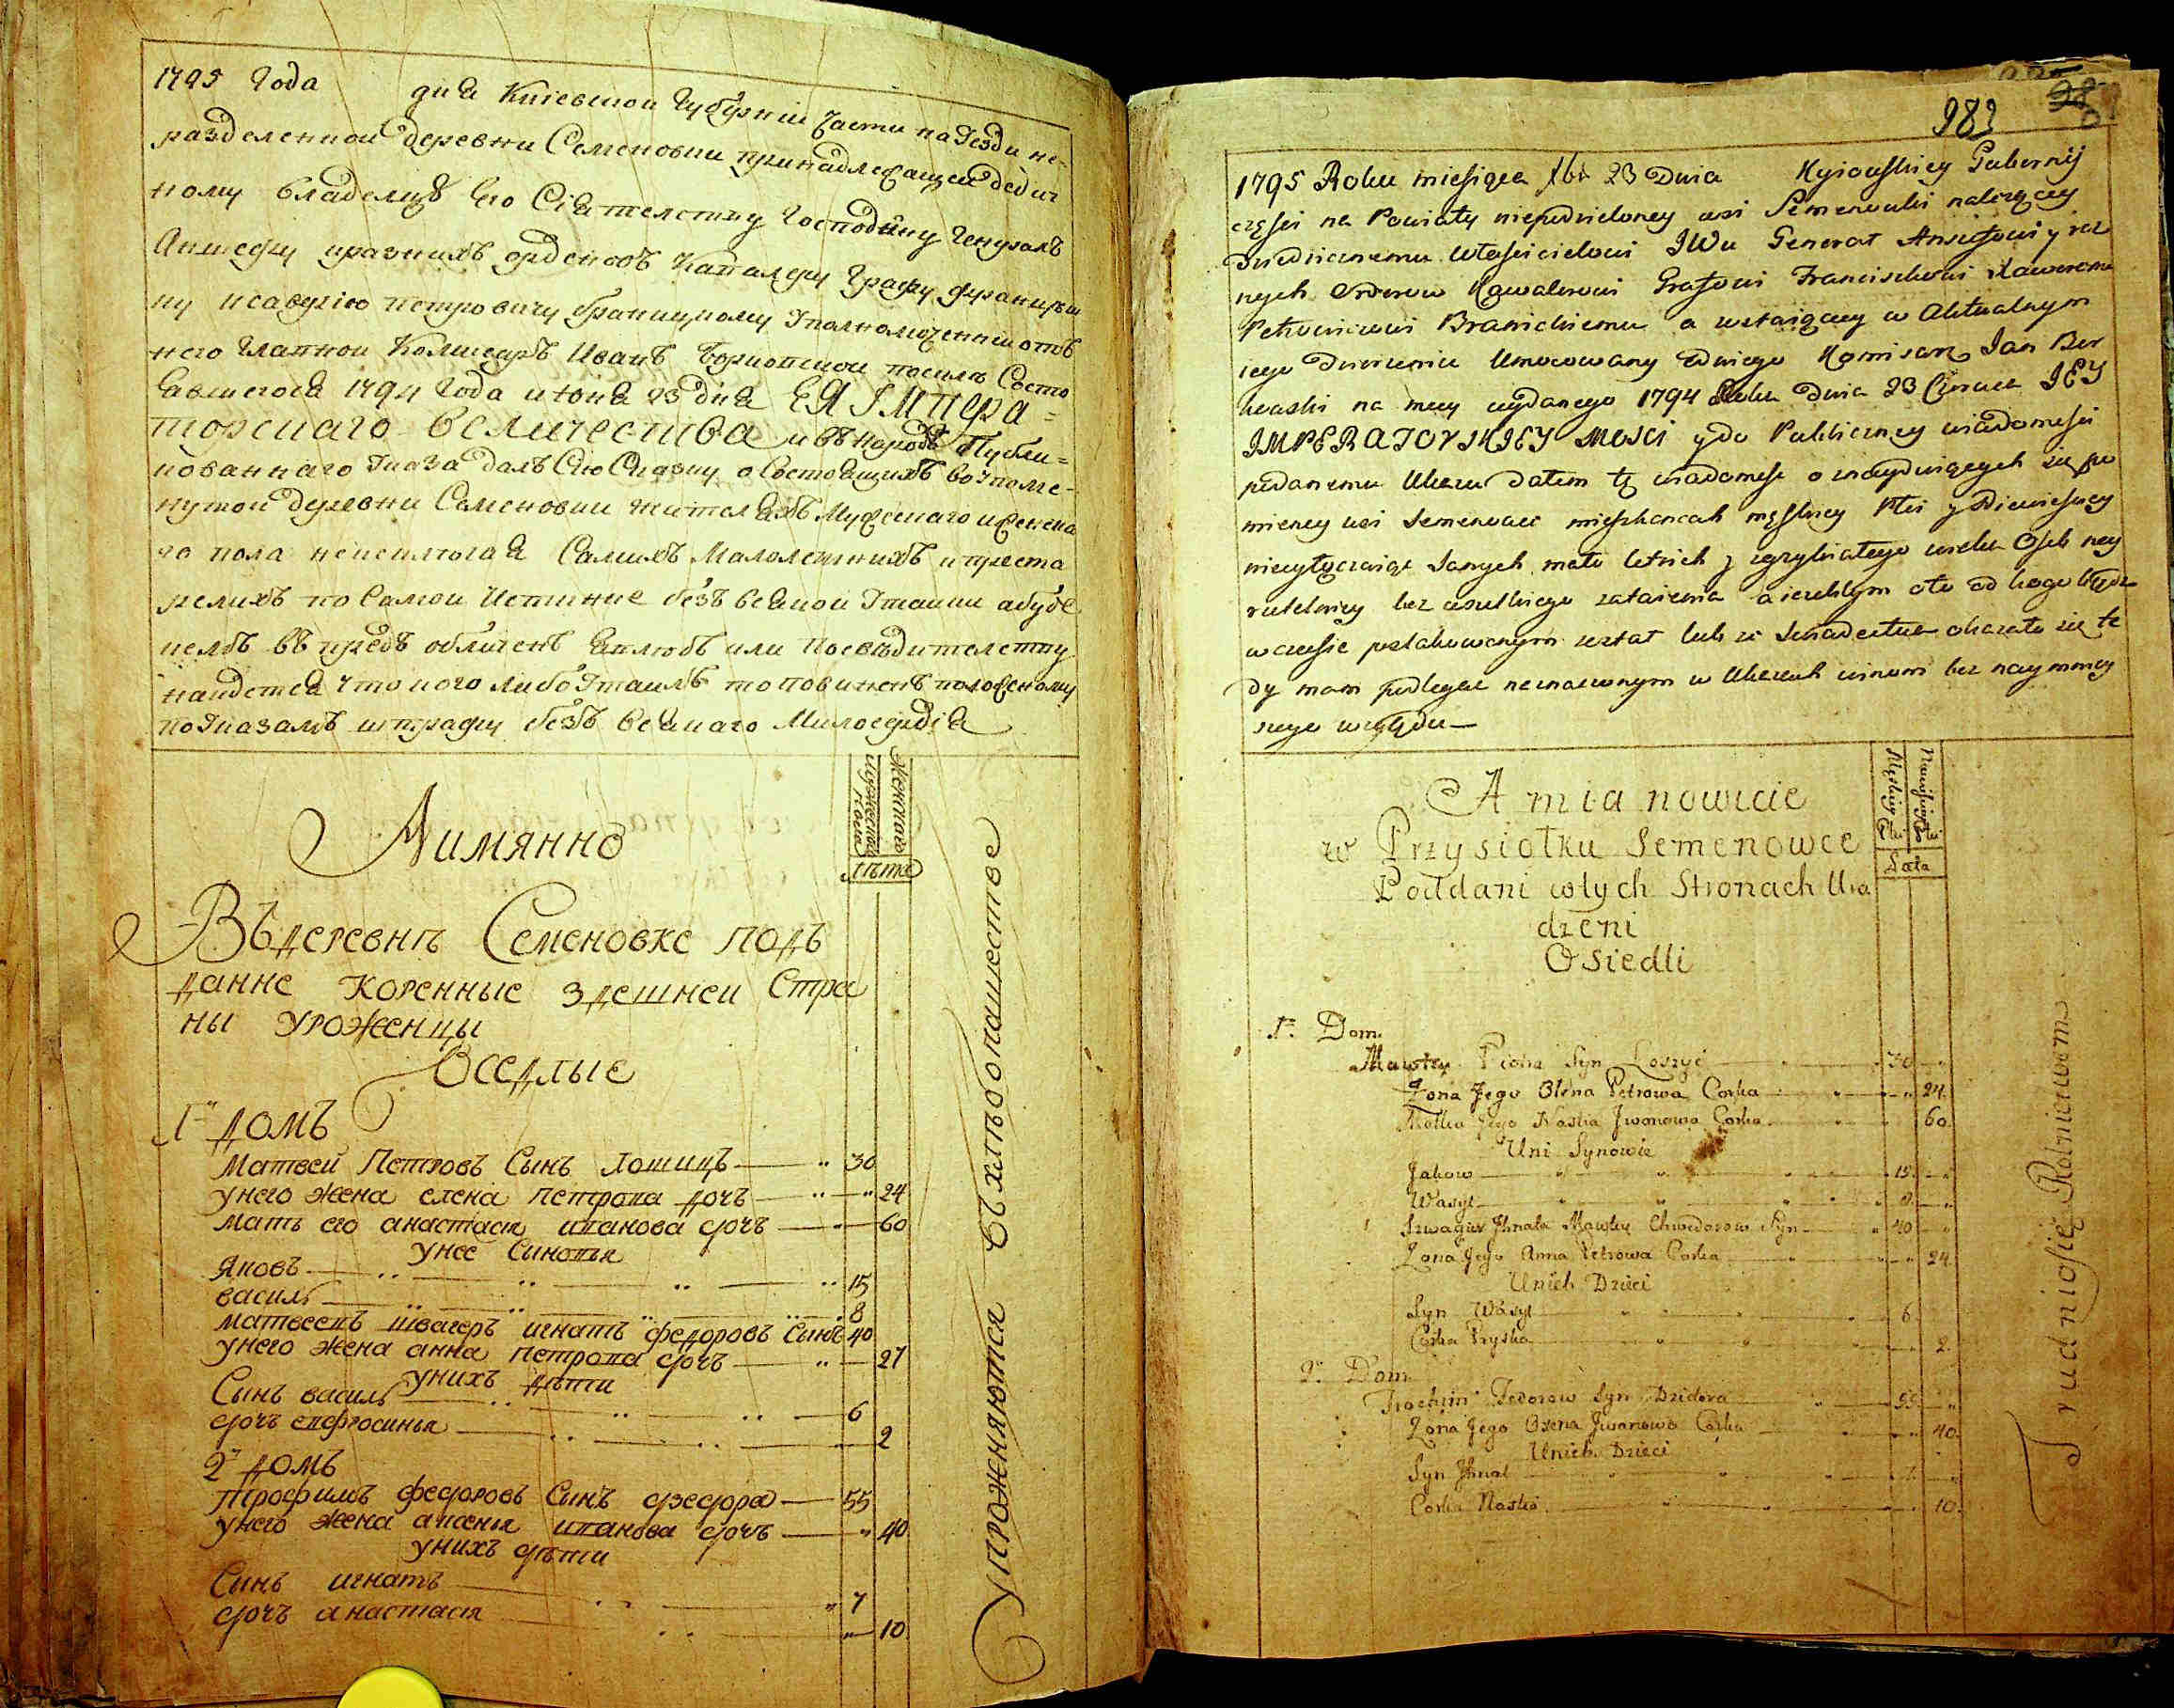 1795 Года дня Киевской Губернии Части на Уезди не-
разделенной деревни Семеновки принадлежащей дедич
ному владелцу Его Сиятелству Господину Генералъ
Аншефу и разнихъ орденовъ Кавалеру Графу Францишку
Ксаверию Петровичу Браницкому Уполномоченний отъ
него Главной Коммисаръ Иванъ Борковской по силе Состо
явшегося 1794 Года июня 23 дня ЕЯ ІМПера=
торскаго Величества и въ народъ Публи=
кованнаго Указа далъ Сию Сказку о Состоящихъ во упомя-
нутой деревни Семеновки жителяхъ Мужескаго и женска
го пола не исключая Самихъ Малолетнихъ и преста
релихъ по Самой Истинне безъ всякой Утайки а буде
въ предъ обличенъ явлюсь или по свидителству
найдется что кого либо Утаилъ то повиненъ положенному
по Указамъ штрафу безъ всякаго Милосердія
Мужескаго пола
Женскаго
лѣта
А имянно
Въ деревнѣ Семеновке подъ
данне коренные здешней Стра
ны уроженцы
Оседлые
1й домъ
Матвей Петровъ Сынъ Лошицъ 30
у него жена елена петрова дочъ 24
мать его анастасия иванова дочъ 60
у нее Синовья
яковъ 15
василь 8
матвеевъ швагеръ игнатъ федоровъ Сынъ 40
у него жена анна петрова дочъ 27
у нихъ дѣти
Сынъ василь 6
дочъ евфросинья 2
2й домъ
трофимъ федоровъ Сынъ дзедора 55
у него жена аксенья иванова дочъ 40
у нихъ дѣти
Сынъ игнатъ 7
дочъ анастасия 10
Упроженяются въ хлѣбопашестве
983
1795 Roku miesiąca 23 Dnia Kyiowskiey Gubernij
części na Powiaty niepodzieloney wsi Semenowki należącey
Dziedzicznemu właścicielowi JWu Generał Anszefowi y roz
nych Orderow Kawalerowi Grafowi Franciszkowi Xaweremu
Petrowiczowi Branickiemu a zostaiący w Aktualnym
iego Dworzeniu Umocowany Jdniego Komisarz Jan Bor
kowski na mocy wydanego 1794 Roku Dnia 23 Czerwca JEY
IMPERATORSKIEY MOSCI y do Publiczney wiadomości
podanemu Ukazu Datem tę wiadomość o znayduiących się po
mieney wsi Semenowce mieszkancach męskiey Płci y Niewieściey
niewyłączaiąc Samych mało letnich y zgrzybiałego wieku Osob ney
rzetelniey bez wszelkiego zataienia a ieżelibym oto od kogo bądz
w czasie poszlakowanym został lub ze Swiadectwa okazało się te
dy mam podlegać naznaczonym w Ukazach winom bez naymniey
szego względu
Męskiey Płci
Niewiesciey Płci
Lata
A mianowicie
w Przysiołku Semenowce
Poddani wtych Stronach Uro
dzeni
Osiedli
1. Dom
Mawtey Piotra Syn Loszyc 30
Zona Jego Olena Petrowa Corka 24
Matka Jego Nastia Jwanowa Corka 60
Uni Synowie
Jakow 15
Wasyl 8
Szwagier Jhnata Mawtey Chwedorow Syn 40
Zona Jego Anna Petrowa Corka 24
Unich Dzieci
Syn Wasyl 6
Corka Pryska 2
2. Dom
Trochim Fedorow Syn Dzidora 55
Zona Jego Oxena Jwanowa Corka 40
Unich Dzieci
Syn Jhnat 7
Corka Nastia 10
Trudnią się Rolnictwem